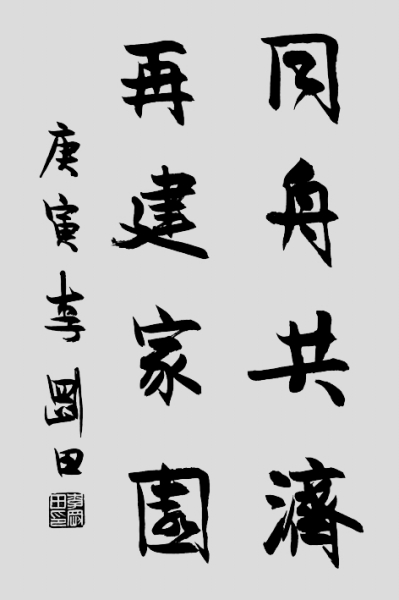 同舟共濟
再建家園
庚寅李剛田
李剛田印